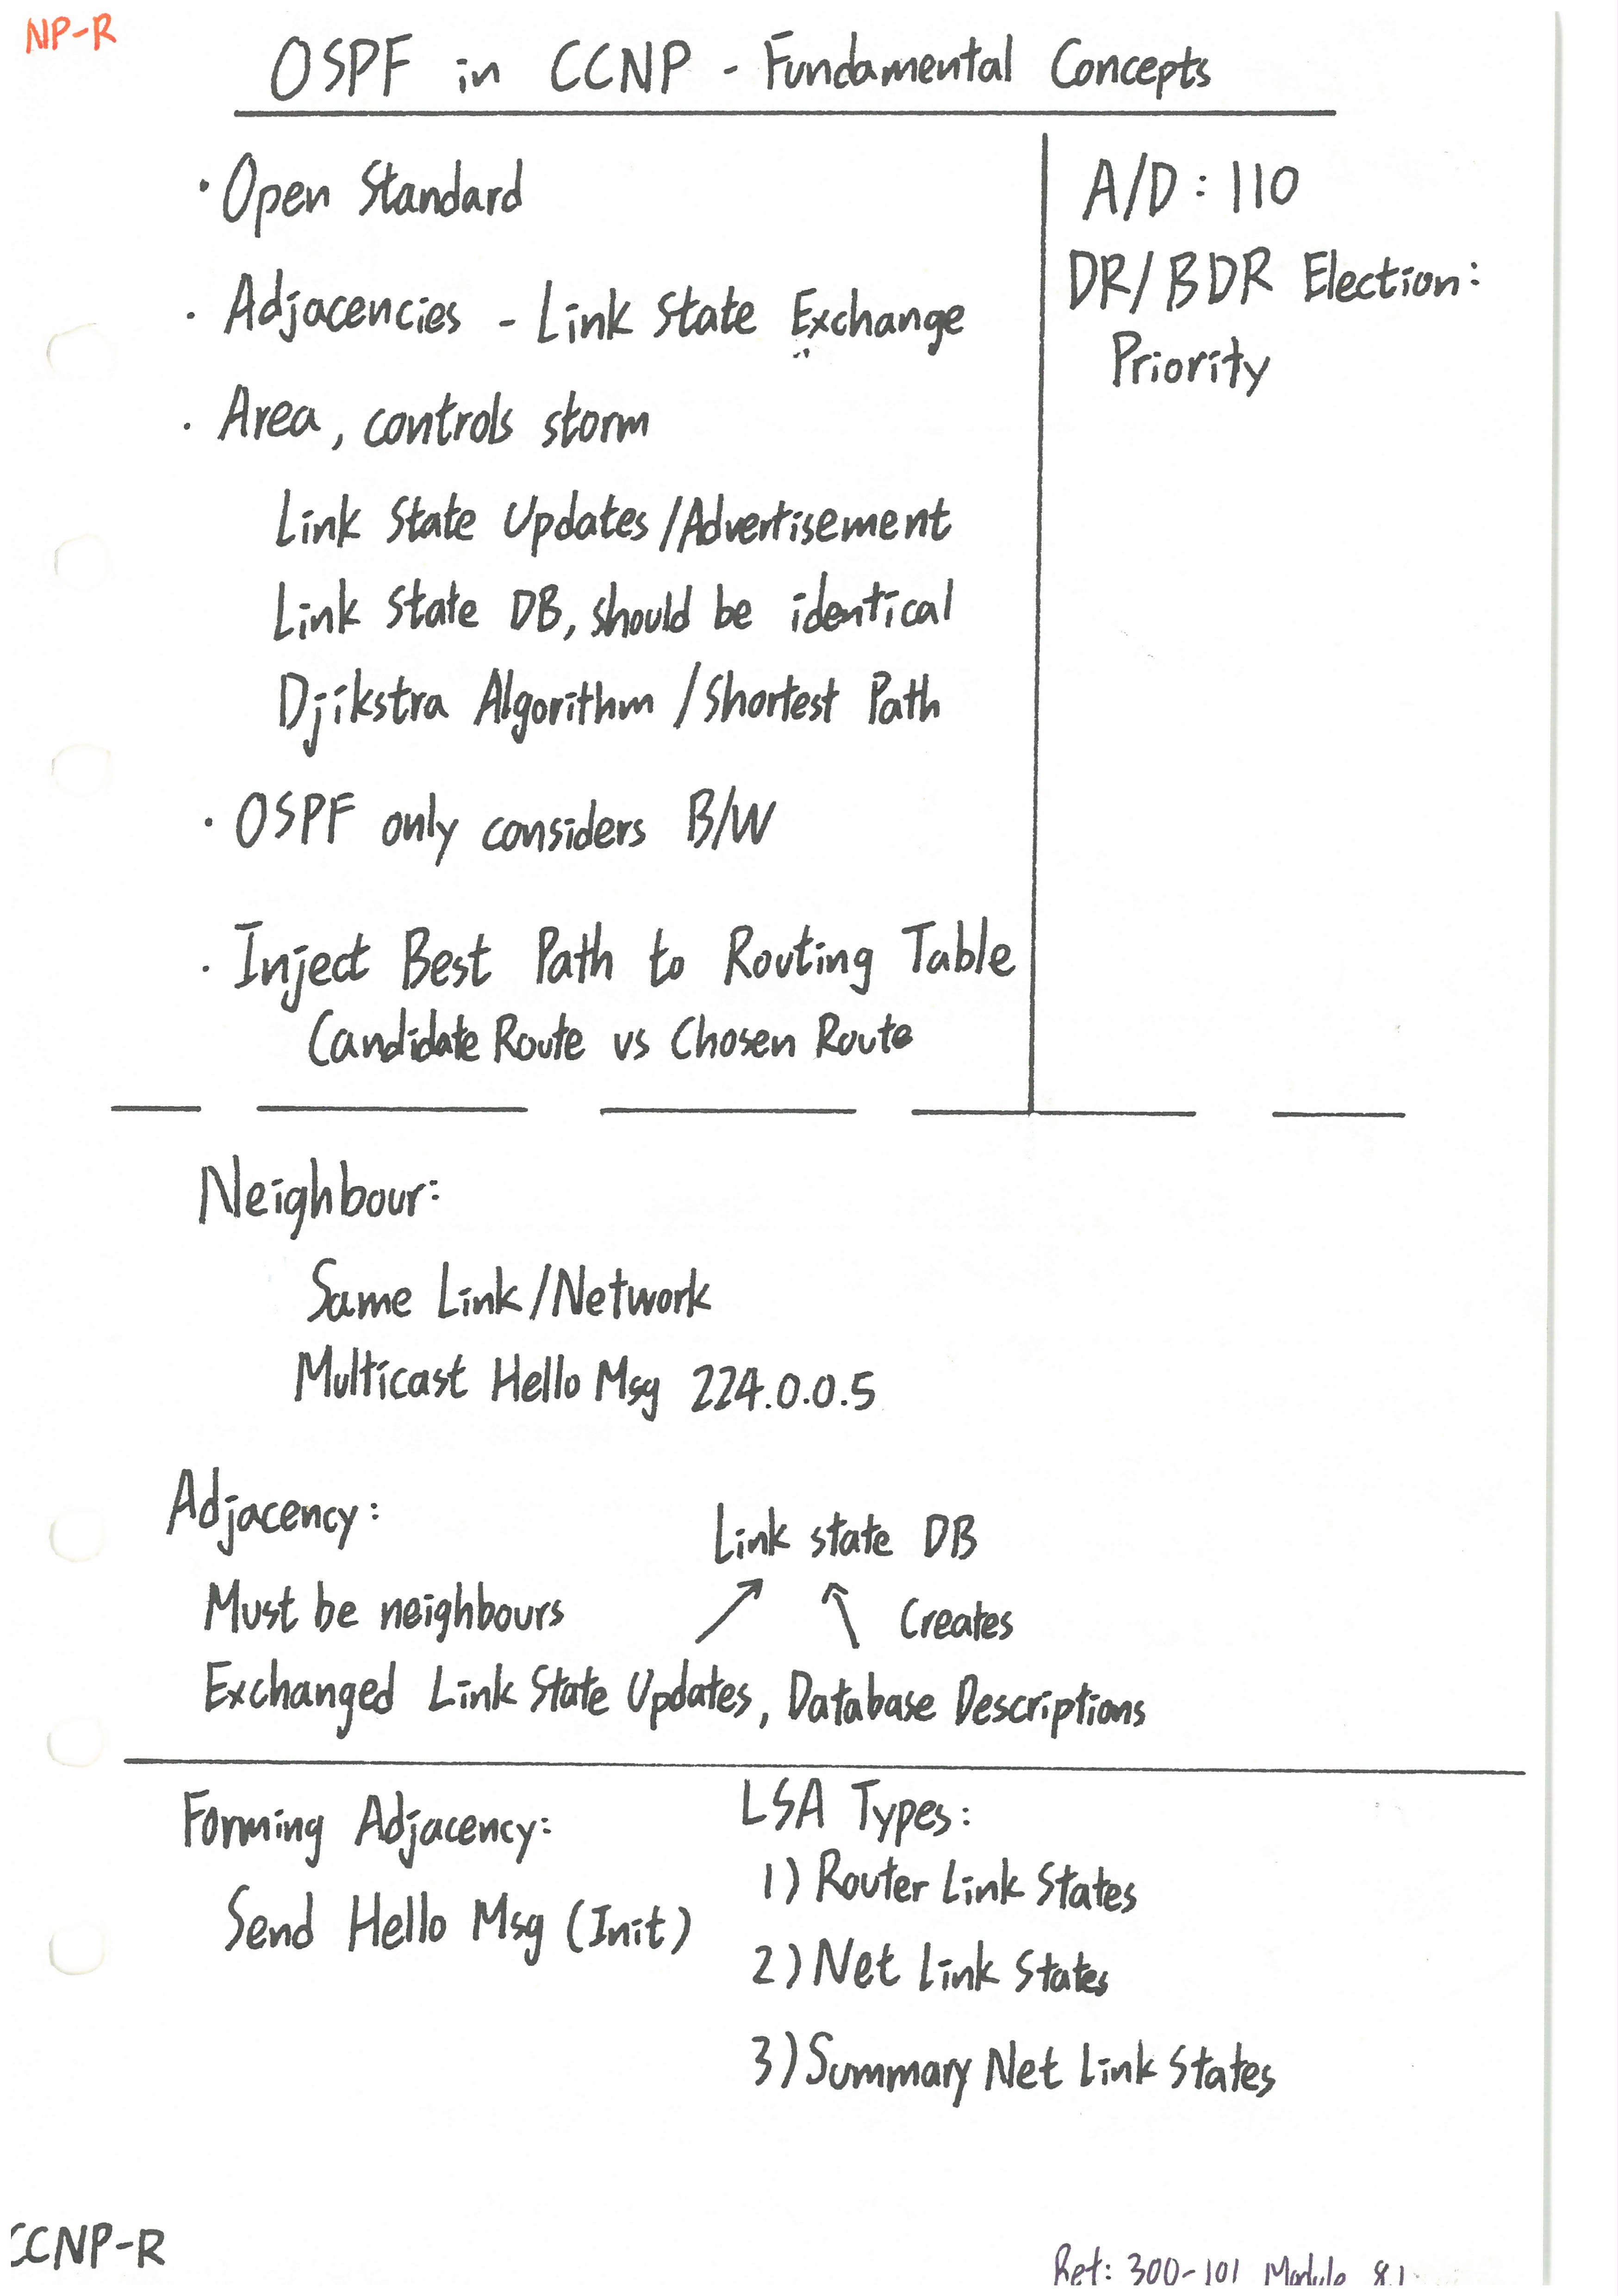 NP-R
OSPF in CCNP - Fundamental Concepts
· Open Standard
· Adjacencies - Link State Exchange
· Area, controls storm
Link State Updates/Advertisement
Link State DB, should be identical
Djikstra Algorithm / Shortest Path
· OSPF only considers B/W
· Inject Best Path to Routing Table
Candidate Route vs Chosen Route
A/D: 110
DR/BDR Election:
Priority
Neighbour:
Same Link/Network
Multicast Hello Msg 224.0.0.5
Adjacency:
Link state DB
Must be neighbours
Creates
Exchanged Link State Updates, Database Descriptions
Forming Adjacency:
Send Hello Msg (Init)
LSA Types:
1) Router Link States
2) Net Link States
3) Summary Net Link States
CCNP-R
Ref: 300-101 Module 8.1